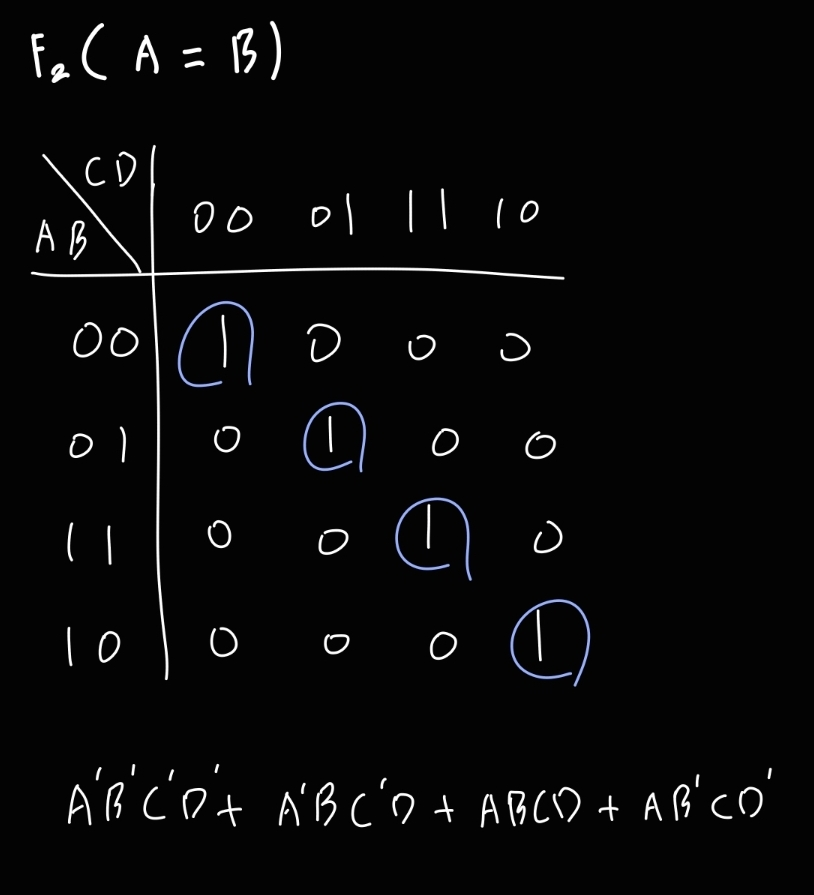 F₂( A = B )
CD
AB
00 01 11 10
00 1 0 0 0
01 0 1 0 0
11 0 0 1 0
10 0 0 0 1
A'B'C'D' + A'BC'D + ABCD + AB'CD'